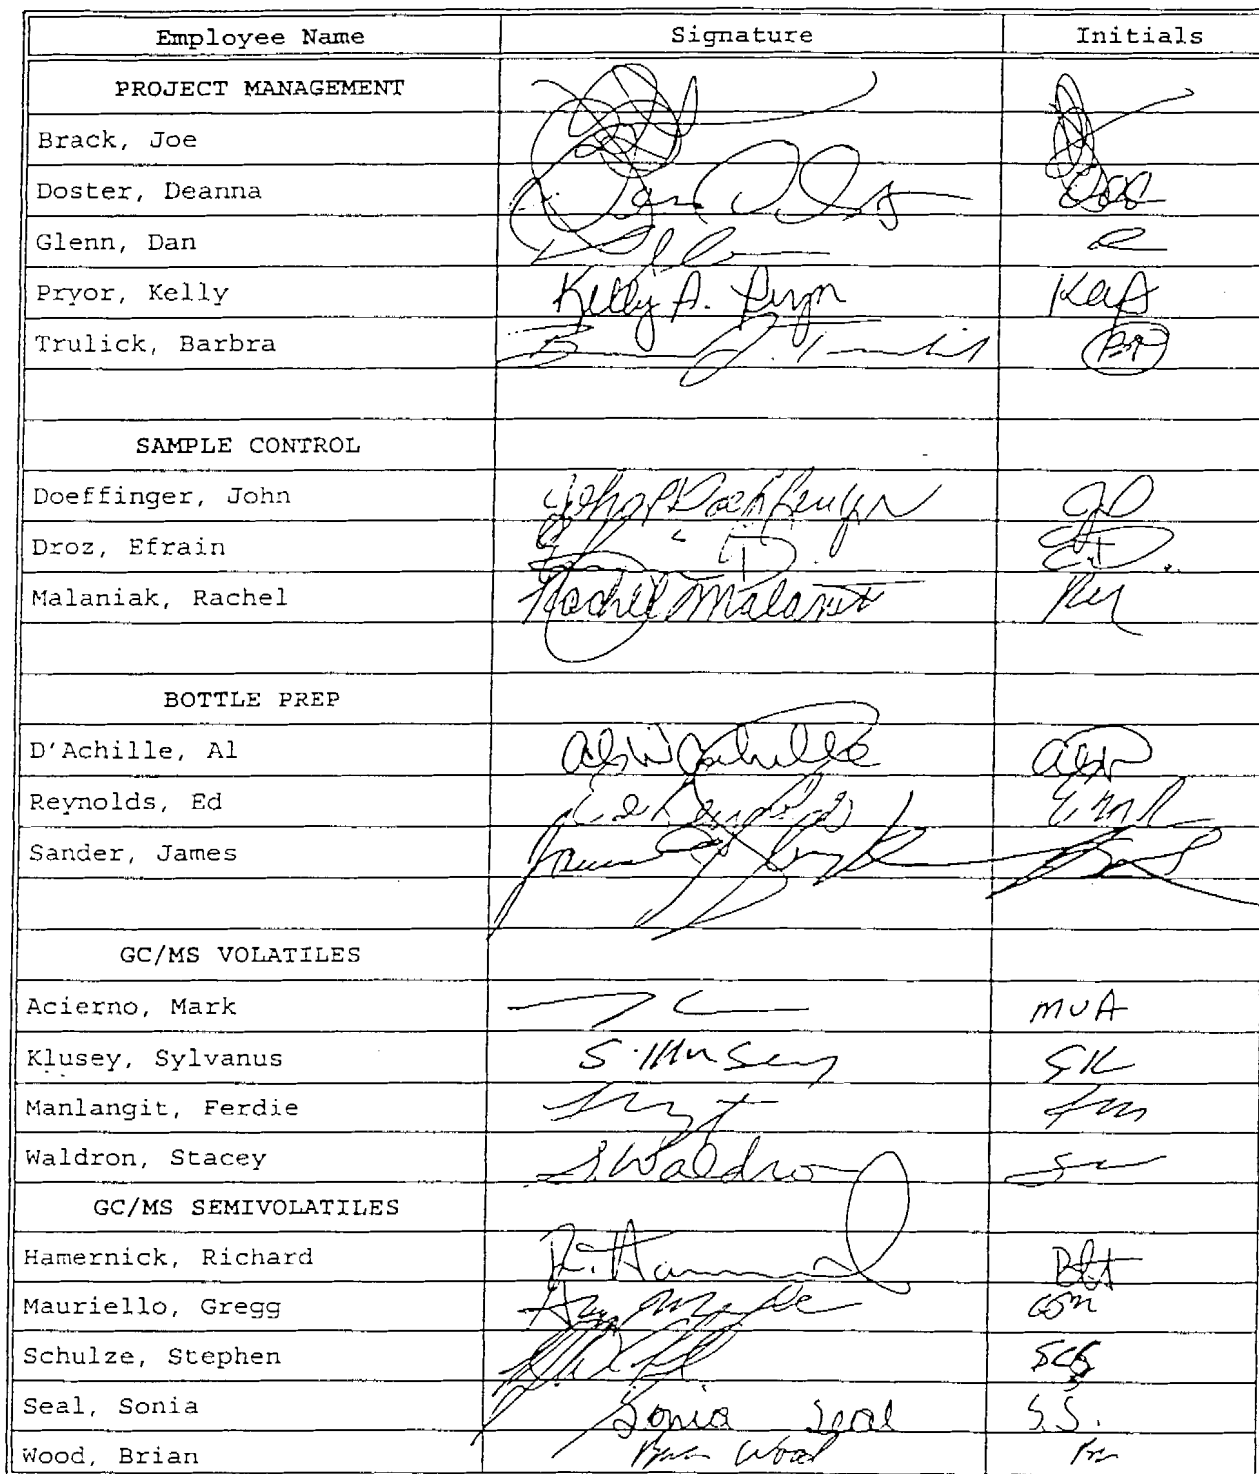 Employee Name Signature Initials
PROJECT MANAGEMENT
Brack, Joe
Doster, Deanna
Glenn, Dan
Pryor, Kelly Kelly A. Pryor KAP
Trulick, Barbra BJT
SAMPLE CONTROL
Doeffinger, John John P Doeffinger JD
Droz, Efrain E.D.
Malaniak, Rachel Rachel Malaniak RM
BOTTLE PREP
D'Achille, Al Al D'Achille
Reynolds, Ed Ed Reynolds EMR
Sander, James James
GC/MS VOLATILES
Acierno, Mark MVA
Klusey, Sylvanus S. Klusey SK
Manlangit, Ferdie fm
Waldron, Stacey S. Waldron SW
GC/MS SEMIVOLATILES
Hamernick, Richard R. Hamernick RH
Mauriello, Gregg GM
Schulze, Stephen SCS
Seal, Sonia Sonia Seal S.S.
Wood, Brian Brian Wood